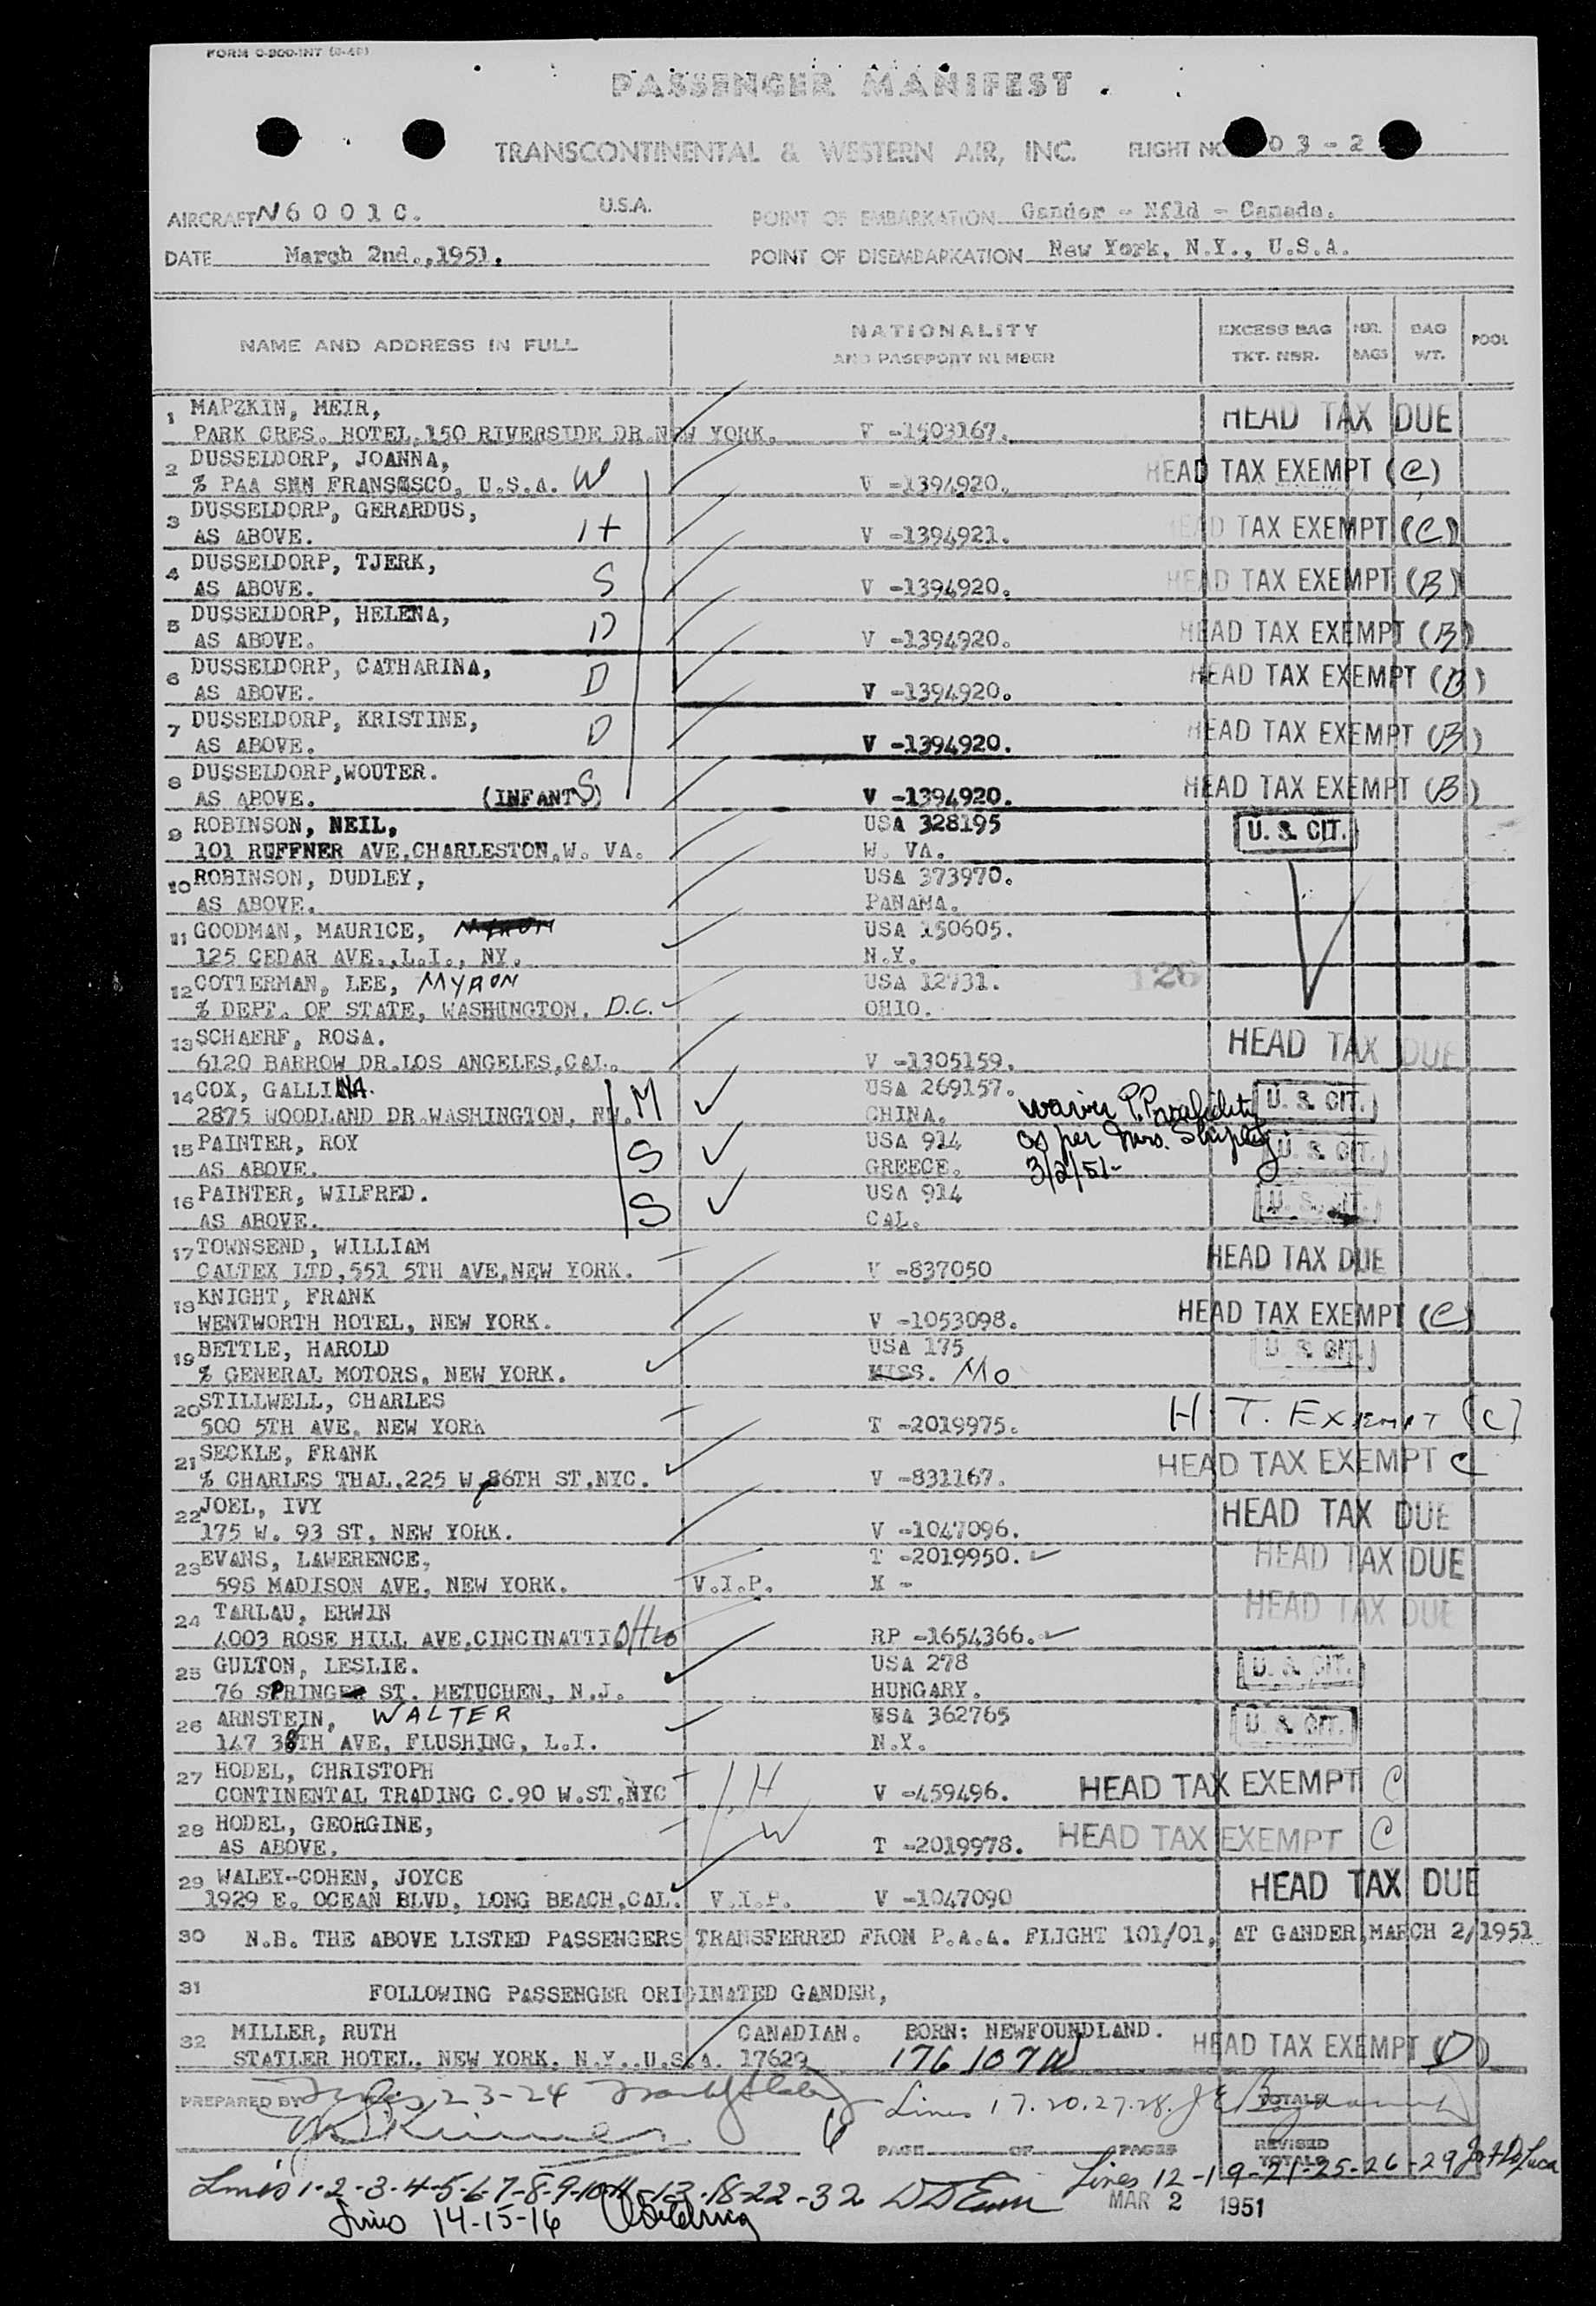 FORM O-900-INT
PASSENGER MANIFEST
TRANSCONTINENTAL & WESTERN AIR, INC. FLIGHT NO 03-2
AIRCRAFT N60010. U.S.A. POINT OF EMBARKATION Gander - Nfld - Canada.
DATE March 2nd.,1951. POINT OF DISEMBARKATION New York, N.Y., U.S.A.
NAME AND ADDRESS IN FULL NATIONALITY AND PASSPORT NUMBER EXCESS BAG TKT. NBR. NBR. BAGS BAG WT. POOL
1 MAPZKIN, MEIR, HEAD TAX DUE
PARK CRES. HOTEL,150 RIVERSIDE DR.NEW YORK. V -1503167.
2 DUSSELDORP, JOANNA, HEAD TAX EXEMPT (C)
% PAA SNN FRANSESCO, U.S.A. W V -1394920.
3 DUSSELDORP, GERARDUS, HEAD TAX EXEMPT (C)
AS ABOVE. H V -1394921.
4 DUSSELDORP, TJERK, HEAD TAX EXEMPT (B)
AS ABOVE. S V -1394920.
5 DUSSELDORP, HELENA, HEAD TAX EXEMPT (B)
AS ABOVE. D V -1394920.
6 DUSSELDORP, CATHARINA, HEAD TAX EXEMPT (B)
AS ABOVE. D V -1394920.
7 DUSSELDORP, KRISTINE, HEAD TAX EXEMPT (B)
AS ABOVE. D V -1394920.
8 DUSSELDORP,WOUTER. HEAD TAX EXEMPT (B)
AS ABOVE. (INFANT) S V -1394920.
9 ROBINSON, NEIL, USA 328195 U. S. CIT.
101 RUFFNER AVE,CHARLESTON,W. VA. W. VA.
10 ROBINSON, DUDLEY, USA 373970.
AS ABOVE. PANAMA.
11 GOODMAN, MAURICE, USA 150605.
125 CEDAR AVE.,L.I., NY. N.Y.
12 COTTERMAN, LEE, MYRON USA 12731. 126
% DEPT. OF STATE, WASHINGTON, D.C. OHIO.
13 SCHAERF, ROSA. HEAD TAX DUE
6120 BARROW DR.LOS ANGELES,CAL. V -1305159.
14 COX, GALLINA. USA 269157. U. S. CIT.
2875 WOODLAND DR.WASHINGTON, NW. M CHINA. waiver P.P. validity
15 PAINTER, ROY USA 914 as per Mrs. Shipley U. S. CIT.
AS ABOVE. S GREECE. 3/2/51-
16 PAINTER, WILFRED. USA 914 U. S. CIT.
AS ABOVE. S CAL.
17 TOWNSEND, WILLIAM HEAD TAX DUE
CALTEX LTD,551 5TH AVE,NEW YORK. V -837050
18 KNIGHT, FRANK HEAD TAX EXEMPT (C)
WENTWORTH HOTEL, NEW YORK. V -1053098.
19 BETTLE, HAROLD USA 175 U. S. CIT.
% GENERAL MOTORS, NEW YORK. MISS. Mo
20 STILLWELL, CHARLES H. T. EXEMPT (C)
500 5TH AVE, NEW YORK T -2019975.
21 SECKLE, FRANK HEAD TAX EXEMPT C
% CHARLES THAL,225 W 86TH ST.NYC. V -831167.
22 JOEL, IVY HEAD TAX DUE
175 W. 93 ST, NEW YORK. V -1047096.
23 EVANS, LAWERENCE, T -2019950. HEAD TAX DUE
598 MADISON AVE, NEW YORK. V.I.P. X -
24 TARLAU, ERWIN HEAD TAX DUE
4003 ROSE HILL AVE,CINCINATTI OHIO RP -1654366.
25 GULTON, LESLIE. USA 278 U. S. CIT.
76 SPRING ST. METUCHEN, N.J. HUNGARY.
26 ARNSTEIN, WALTER USA 362765 U. S. CIT.
147 38TH AVE, FLUSHING, L.I. N.Y.
27 HODEL, CHRISTOPH H HEAD TAX EXEMPT C
CONTINENTAL TRADING C.90 W.ST,NYC V -459496.
28 HODEL, GEORGINE, W HEAD TAX EXEMPT C
AS ABOVE. T -2019978.
29 WALEY-COHEN, JOYCE HEAD TAX DUE
1929 E. OCEAN BLVD, LONG BEACH,CAL. V.I.P. V -1047090
30 N.B. THE ABOVE LISTED PASSENGERS TRANSFERRED FRON P.A.A. FLIGHT 101/01, AT GANDER,MARCH 2/1951
31 FOLLOWING PASSENGER ORIGINATED GANDER,
32 MILLER, RUTH CANADIAN. BORN: NEWFOUNDLAND. HEAD TAX EXEMPT (D)
STATLER HOTEL, NEW YORK, N.Y..U.S.A. 17629
PREPARED BY 23-24 Lines 17.20.27.28. TOTALS
PAGE OF PAGES REVISED TOTALS
Lines 1-2-3-4-5-6-7-8-9-10-11-13-18-22-32 Lines 12-19-21-25-26-29
MAR 2 1951
Lines 14-15-16